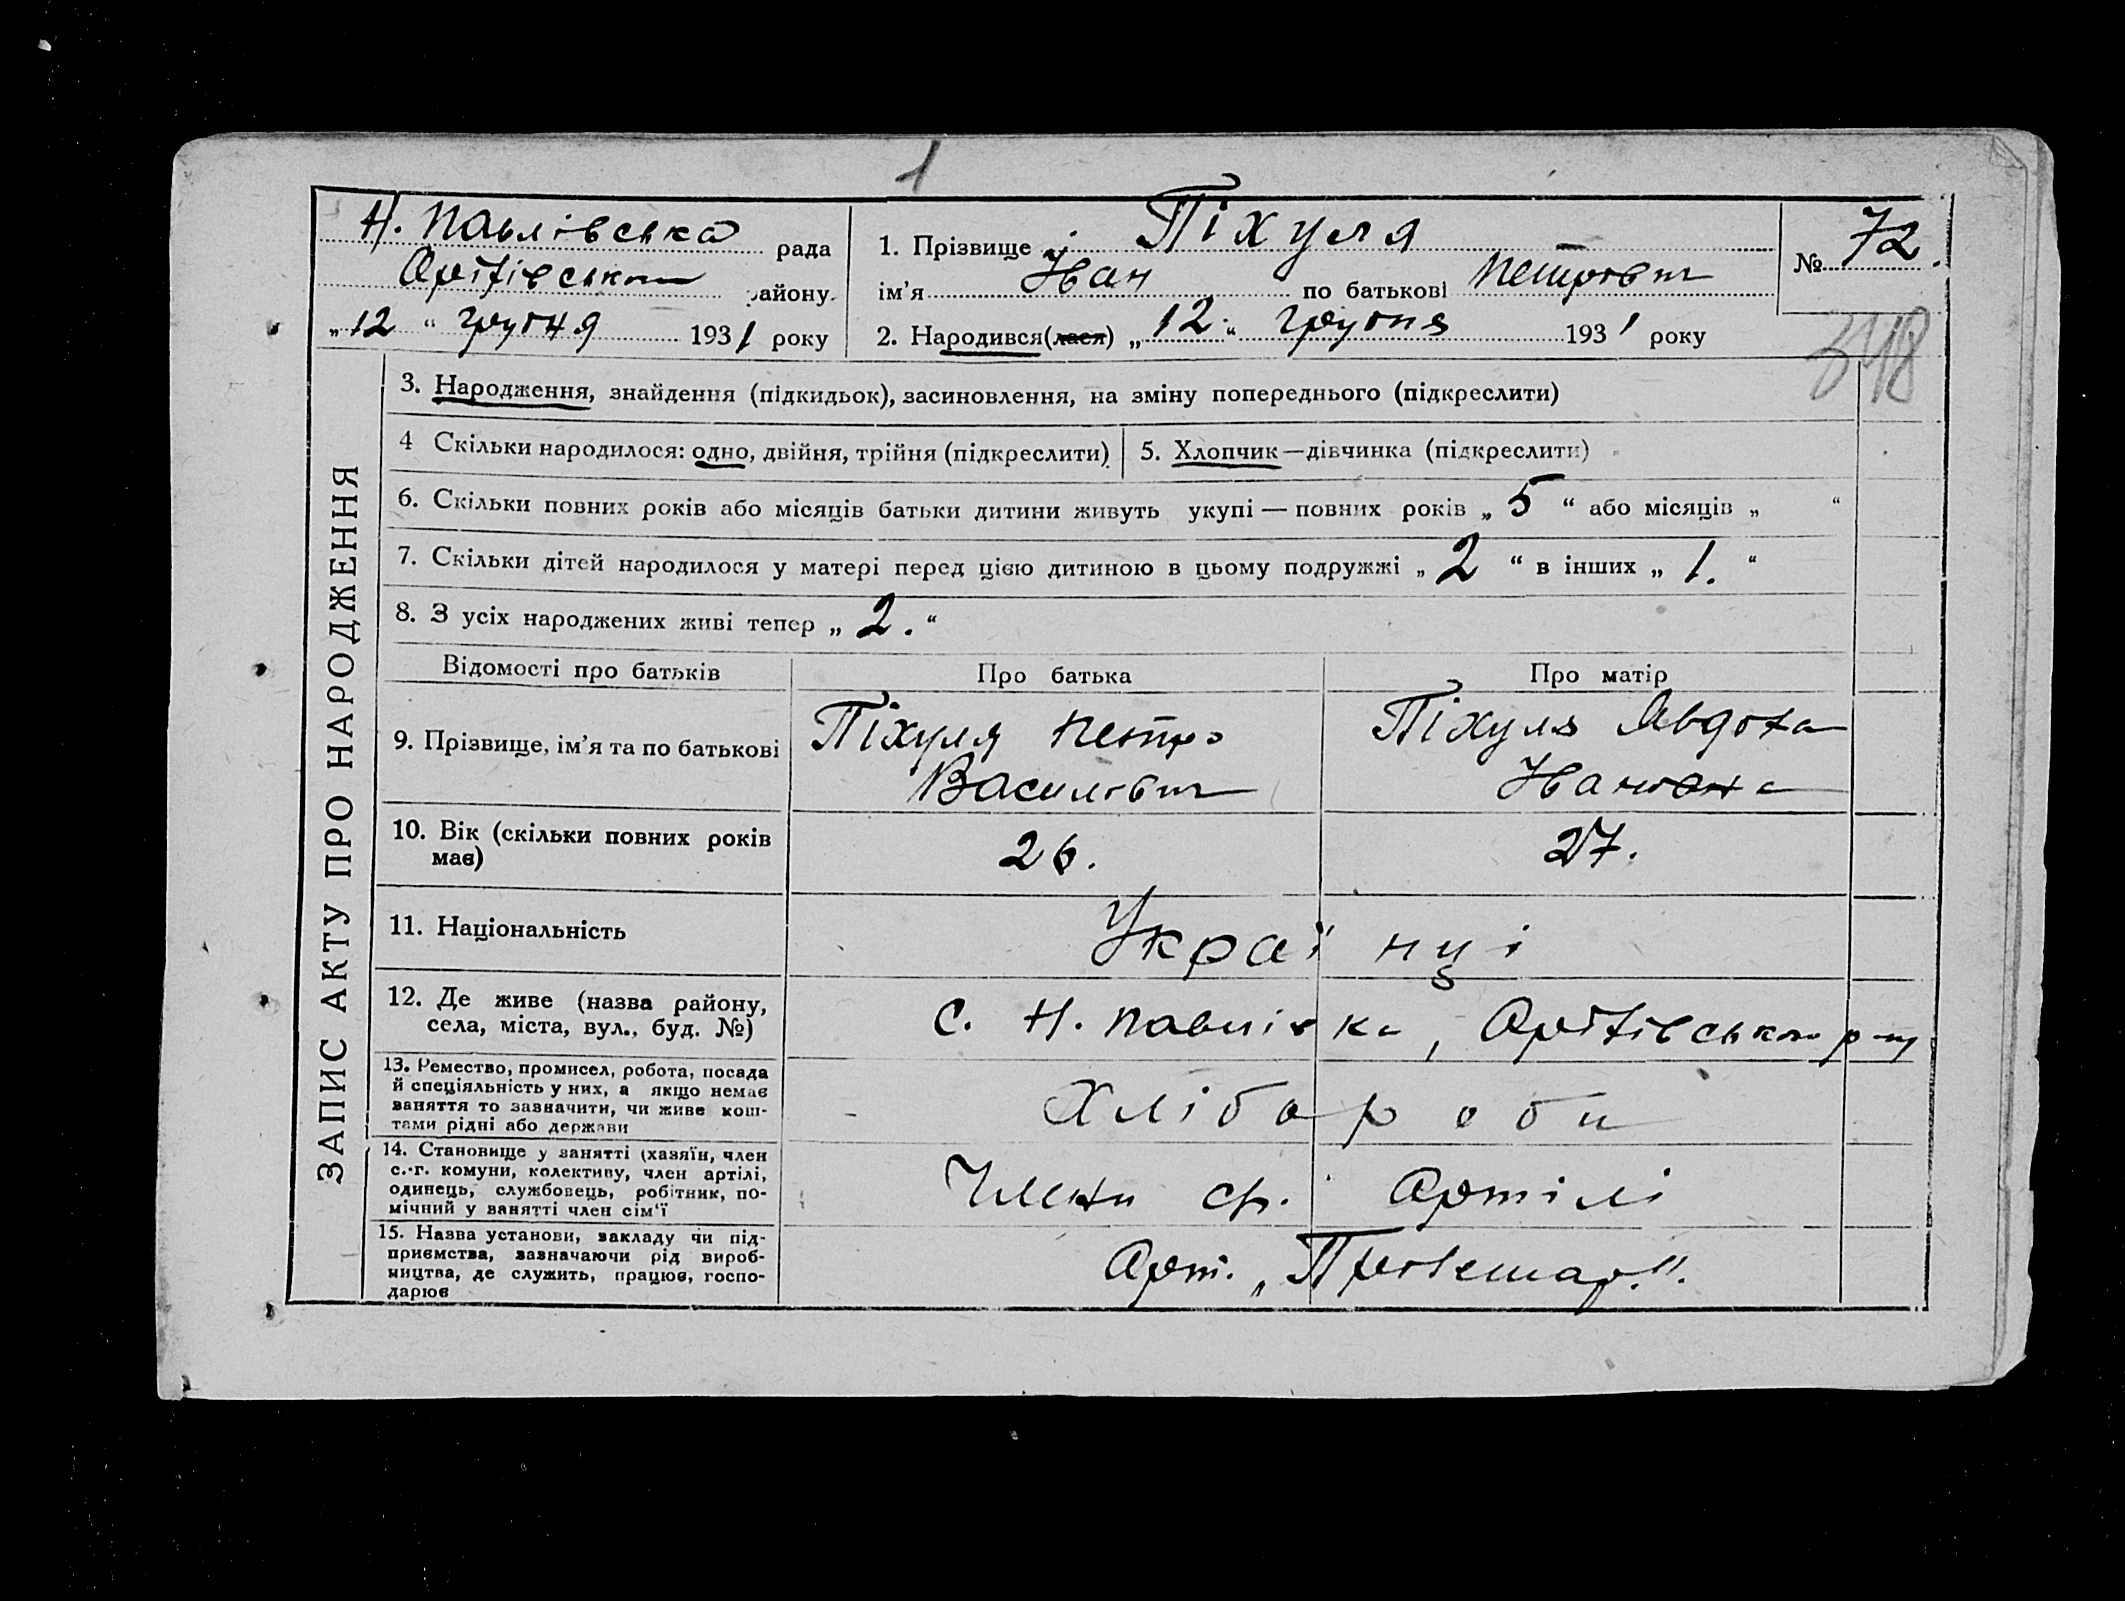 1
Н. Павлівська рада
району
„12“ грудня 1931 року
1. Прізвище Піхуля
ім’я Іван по батькові Петрович
2. Народився(лася) „12.“ грудня 1931 року
№ 72.
348
ЗАПИС АКТУ ПРО НАРОДЖЕННЯ
3. Народження, знайдення (підкидьок), засиновлення, на зміну попереднього (підкреслити)
4 Скільки народилося: одно, двійня, трійня (підкреслити)
5. Хлопчик—дівчинка (підкреслити)
6. Скільки повних років або місяців батьки дитини живуть укупі — повних років „5“ або місяців „ “
7. Скільки дітей народилося у матері перед цією дитиною в цьому подружжі „2“ в інших „1.“
8. З усіх народжених живі тепер „2.“
Відомості про батьків
Про батька
Про матір
9. Прізвище, ім’я та по батькові
Піхуля Петро
Василович
Піхуля Явдоха
Івановна
10. Вік (скільки повних років
має)
26.
27.
11. Національність
Українці
12. Де живе (назва району,
села, міста, вул., буд. №)
с. Н. Павлівка,
13. Ремество, промисел, робота, посада
й спеціяльність у них, а якщо немає
заняття то зазначити, чи живе кош-
тами рідні або держави
Хлібороби
14. Становище у занятті (хазяїн, член
с.-г. комуни, колективу, член артілі,
одинець, службовець, робітник, по-
мічний у занятті член сім’ї
Члени ср. Артілі
15. Назва установи, закладу чи під-
приємства, зазначаючи рід вироб-
ництва, де служить, працює, госпо-
дарює
Арт. „Пролетар.“.